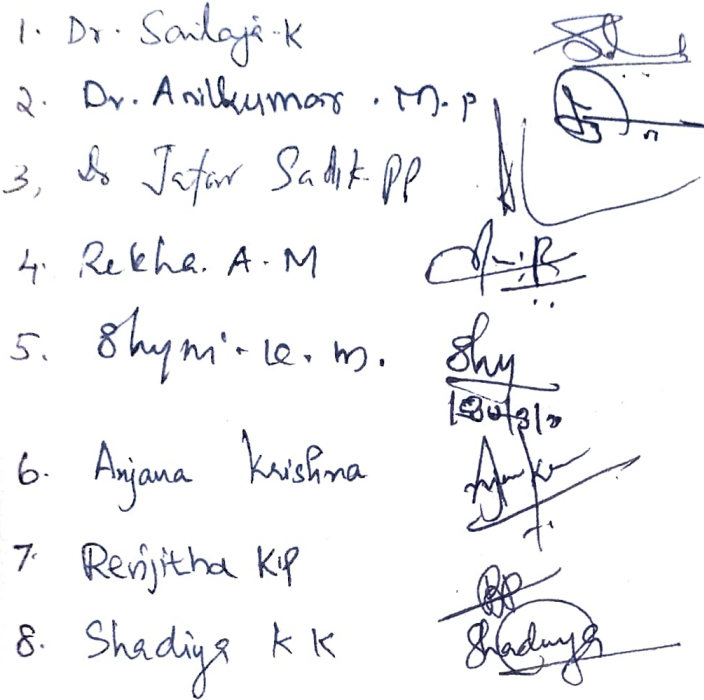 1. Dr. Sailaja K
2. Dr. Anilkumar . M. P
3, Dr Jafar Sadik PP
4. Rekha. A. M
5. Shymi . K. M. Shy
6. Anjana Krishna
7. Renjitha K.P
8. Shadiya K K Shadiya